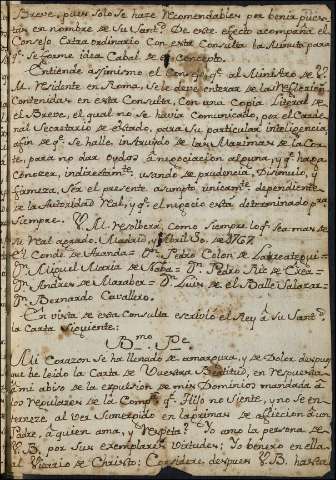 Breve, pues solo se haze recomendable por benir puer-
tas en nombre de Su Sant.d De este efecto acompaña el
Consejo Extraordinario con esta Consulta la Minuta para
q.e se forme idea Cabal de su Concepto.
Entiende assimismo el Consejo q.e al Ministro de V.
M. Residente en Roma, se le debe enterar de las Reflexiones
Contenidas en esta Consulta, con una Copia literal de
el Breve, el qual no se havia comunicado, por el Carde-
nal Secretario de estado, para su particular inteligencia
afin de q.e se halle, instruido de las Maximas de la Cor-
te, para no dar oydos à negociacion alguna, y q.e haga
Conozer, indirectam.te usando de prudencia, Disimulo, y
firmeza, ser el presente asumpto, unicam.te dependiente
de la Autoridad Real, y q.e el negocio està determinado pra
siempre. V. M. resolverà, como siempre lo q.e sea mas de
su Real agrado. Madrid, y Abril 30. de 1767.
el Conde de Aranda = D.n Pedro Colon de Larreategui =
D.n Miguel Maria de Naba = D.n Pedro Ric de Exea =
D.n Andres de Maraber = D.n Luis de el Balle Salazar =
D.n Bernardo Cavallero.
En vista de esta Consulta escrivio el Rey à Su Sant.d
la Carta siguiente:
B.mo P.e
Mi Corazon se ha llenado de amargura, y de Dolor despues
que he leido la Carta de Vuestra Beatitud, en respuesta
à mi abiso de la expulsion de mis Dominios mandada à
los Regulares de la Comp.a q.e Hijo no siente, y no se en-
terneze al ver Sumergido en lagrimas de afliccion à un
Padre, à quien ama, y respeta? Yo amo la persona de
V. B. por sus exemplares virtudes; Yo benero en ella
al Vicario de Christo: Considere despues V. B. hasta